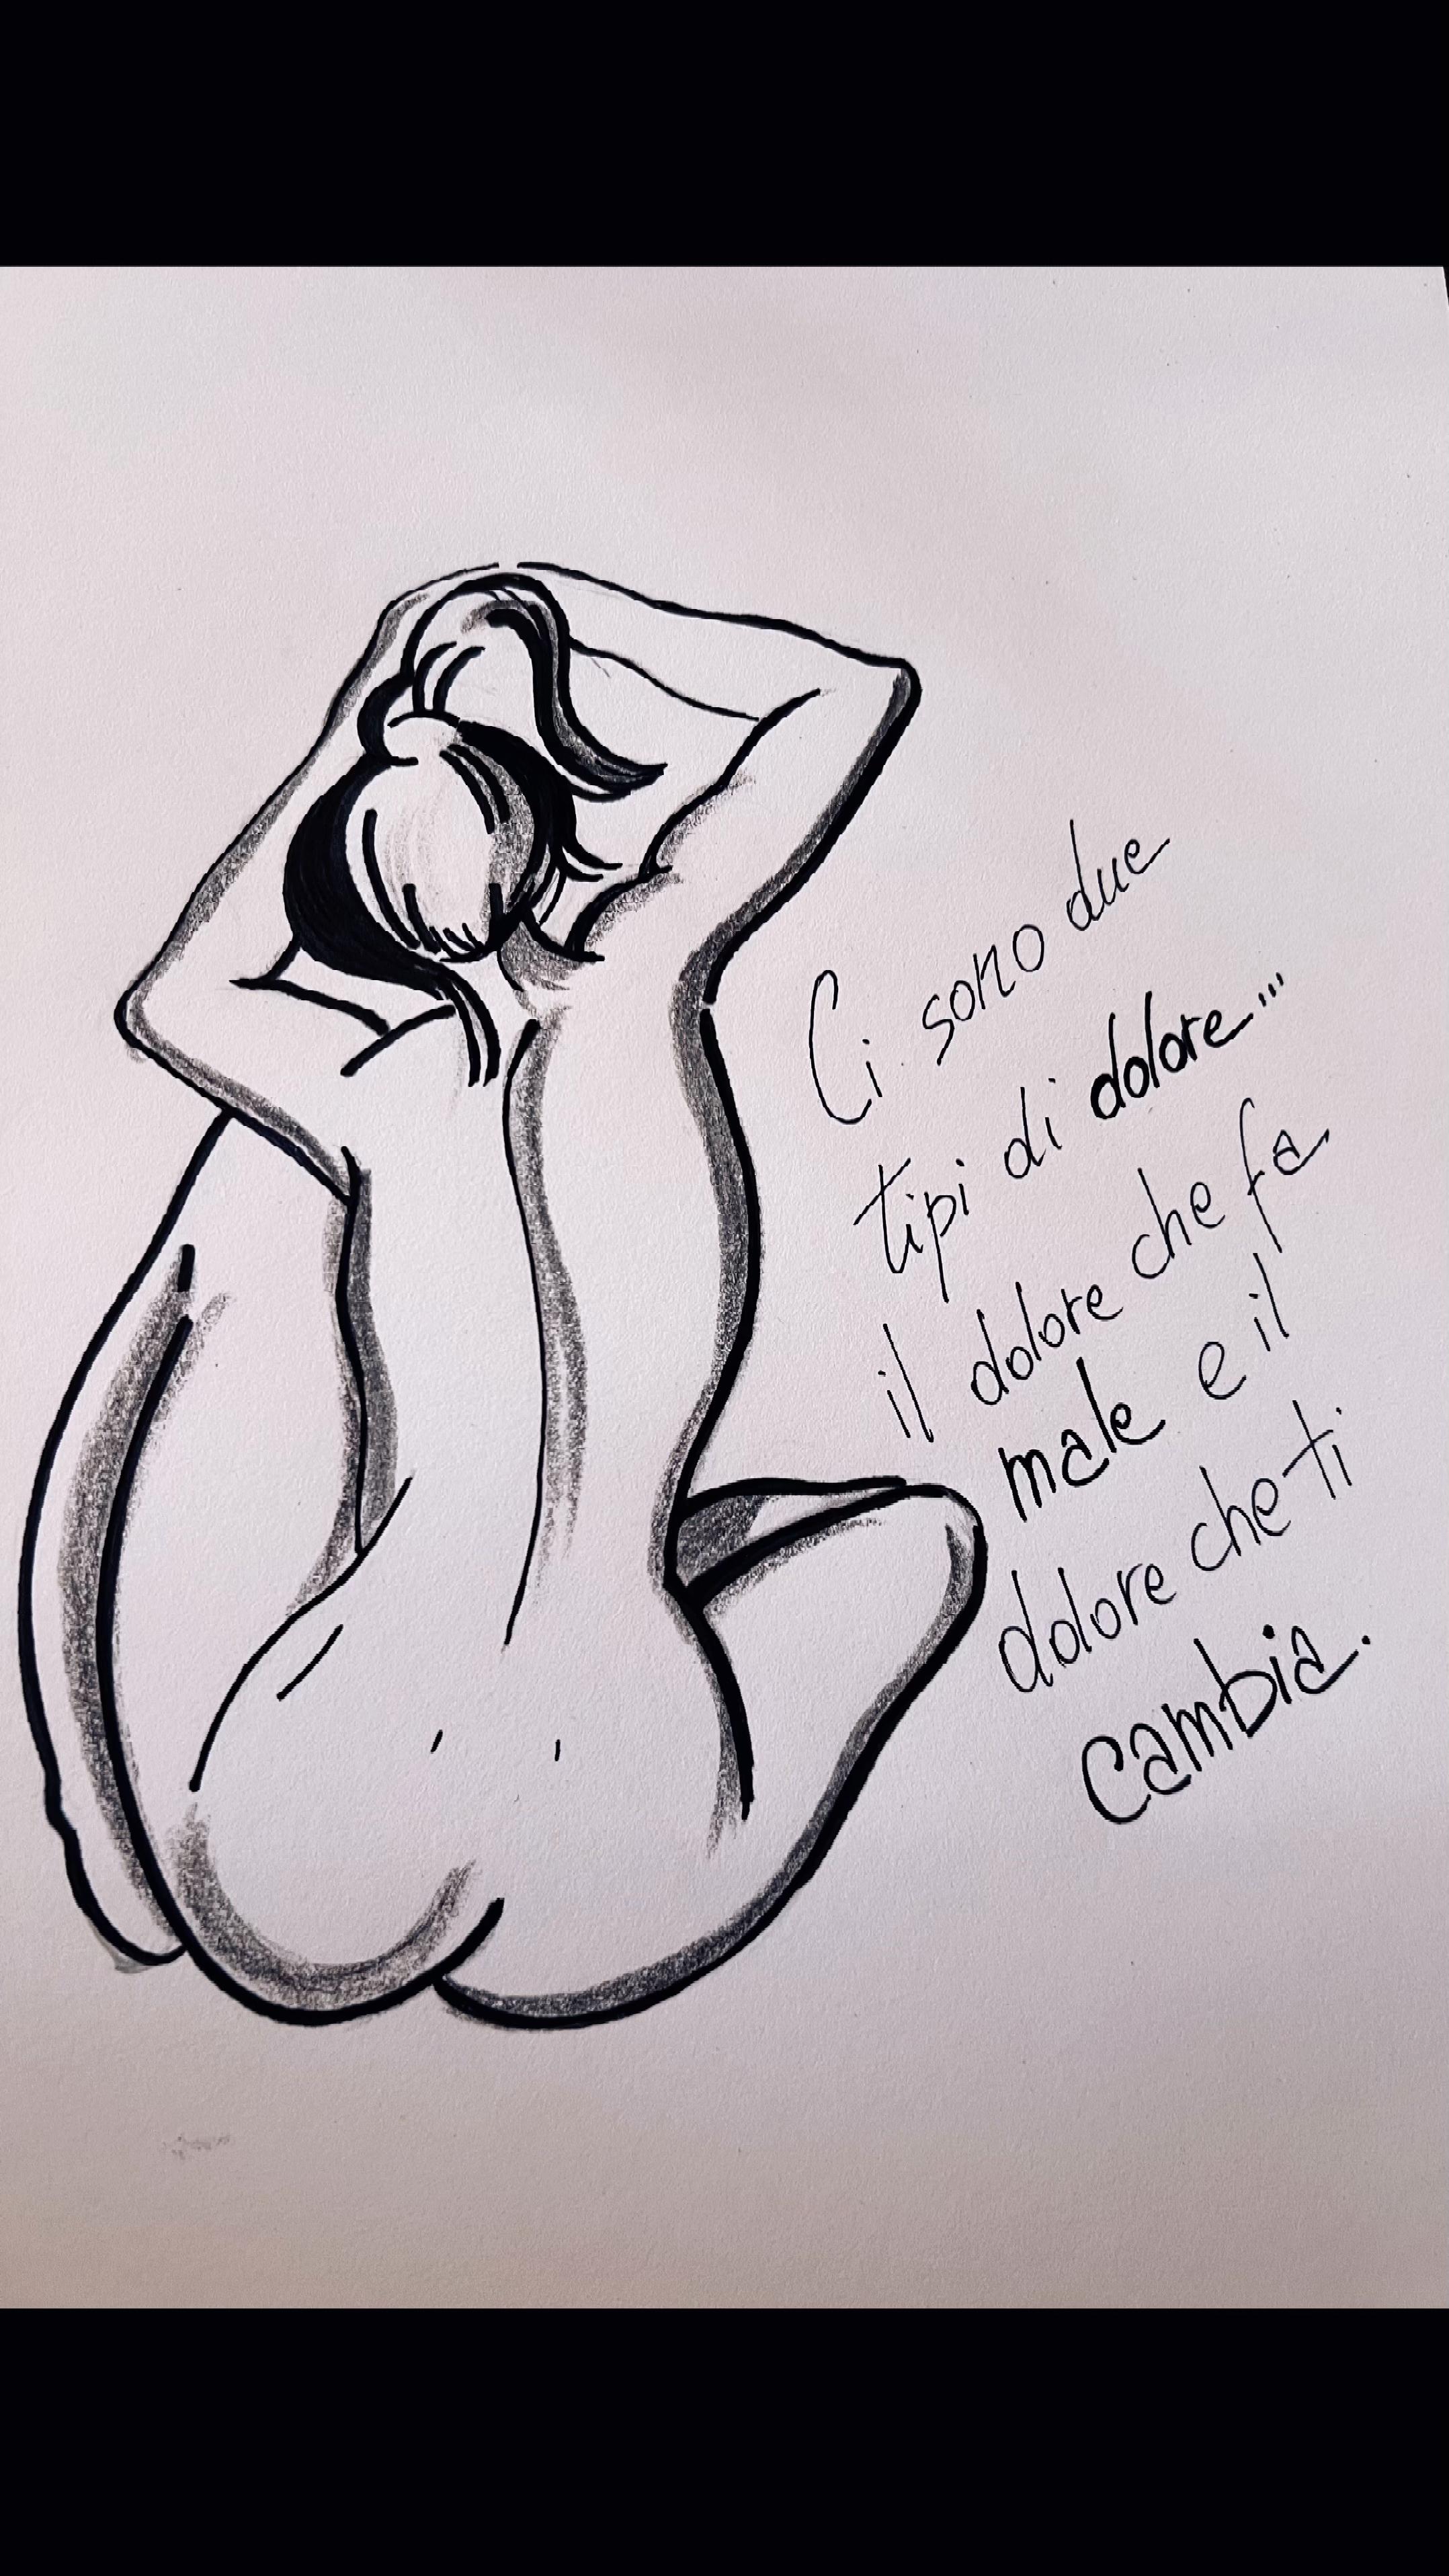 Ci sono due
tipi di dolore...
il dolore che fa
male e il
dolore che ti
cambia.